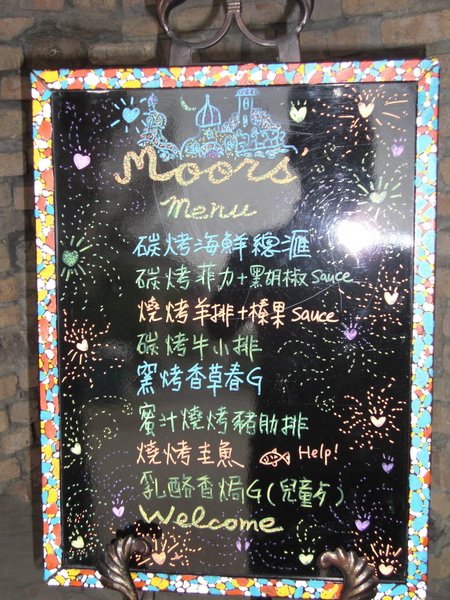 Moors'
Menu
碳烤海鮮總滙
碳烤菲力+黑胡椒Sauce
燒烤羊排+榛果Sauce
碳烤牛小排
窯烤香草春G
蜜汁燒烤豬肋排
燒烤圭魚 Help!
乳酪香焗G(兒童歺)
Welcome